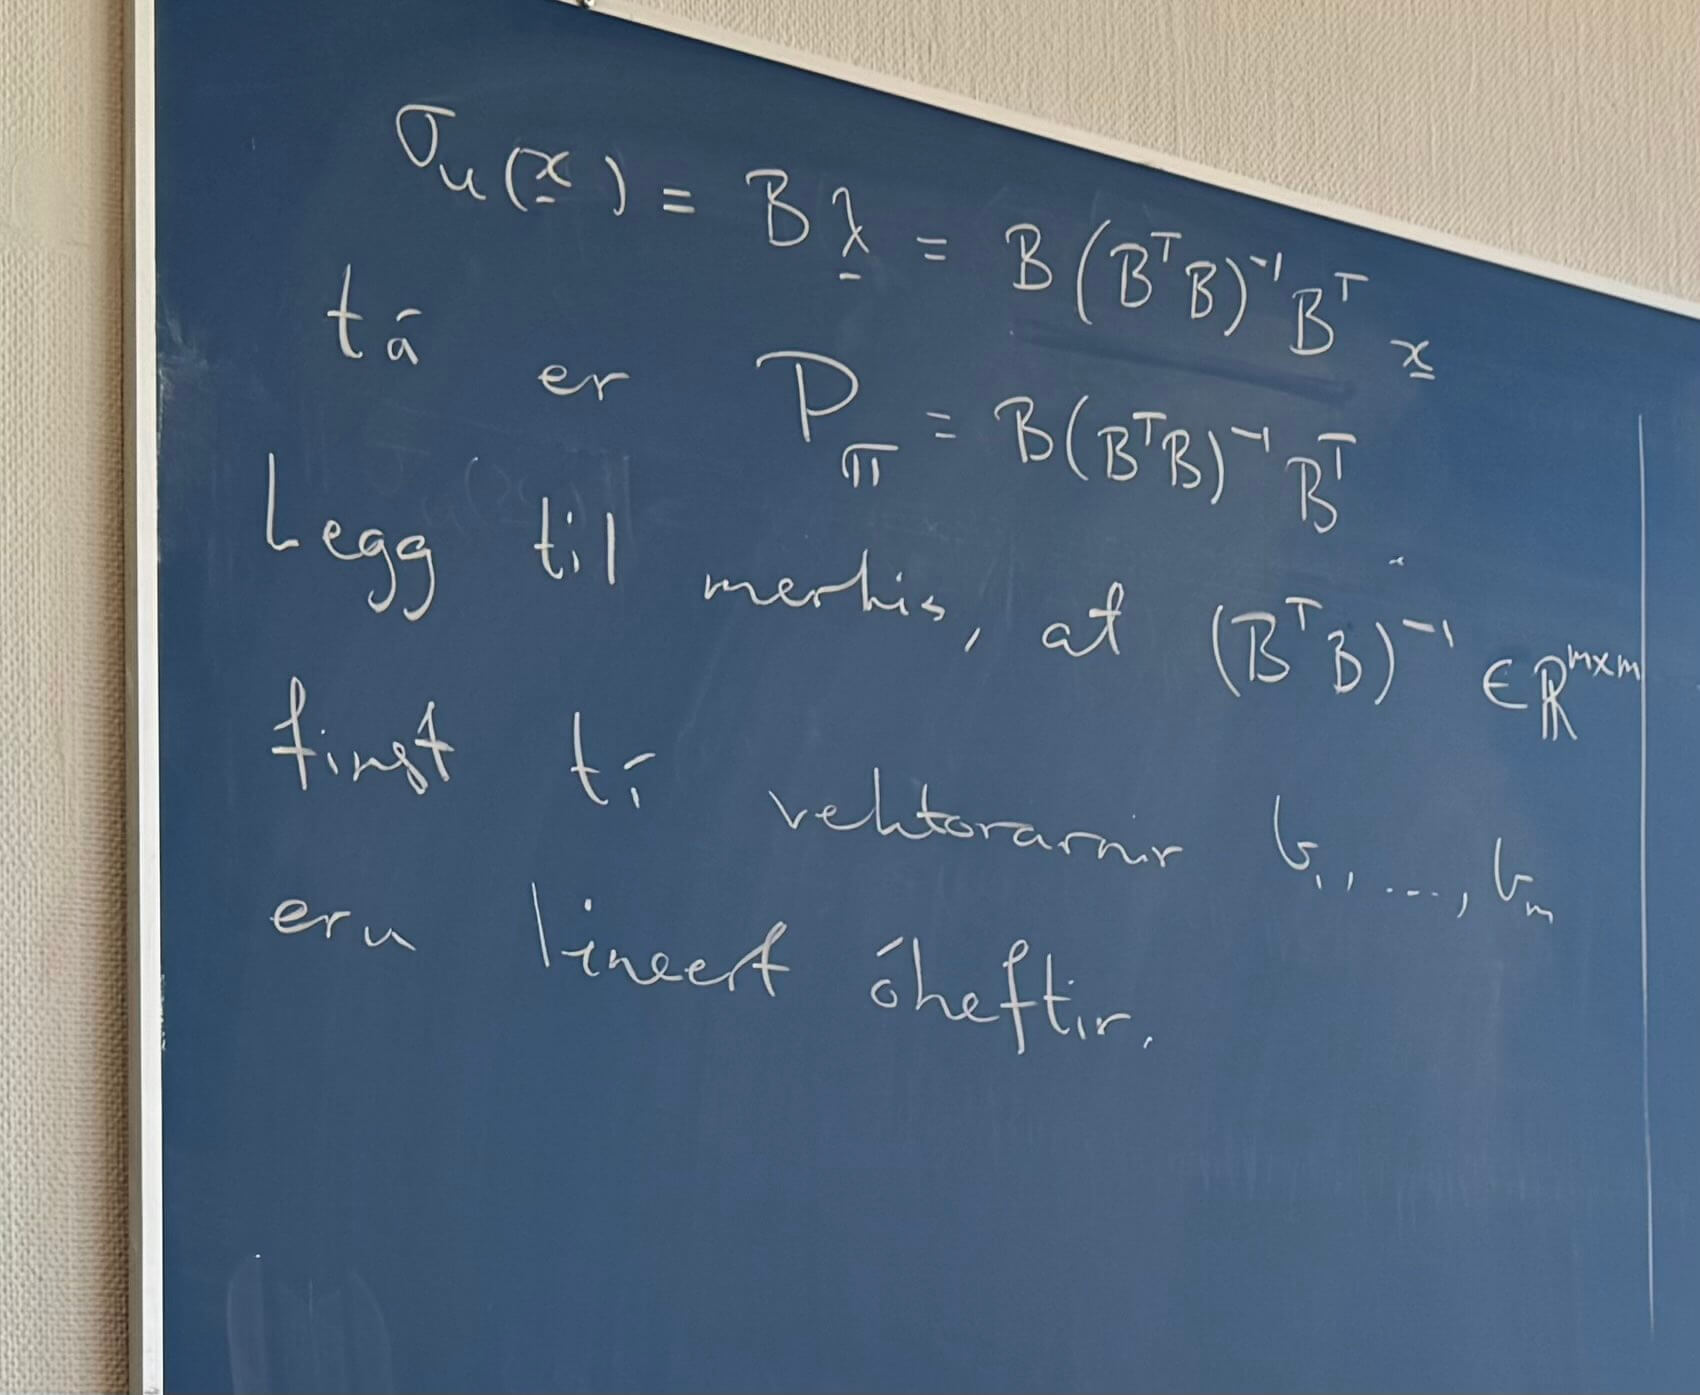 σᵤ(x̲) = Bλ̲ = B(BᵀB)⁻¹Bᵀ x̲
tá er P_π = B(BᵀB)⁻¹Bᵀ
Legg til merkis, at (BᵀB)⁻¹ ∈ ℝᵐˣᵐ
finst tí vektorarnir b₁, ..., bₘ
eru lineert óheftir.